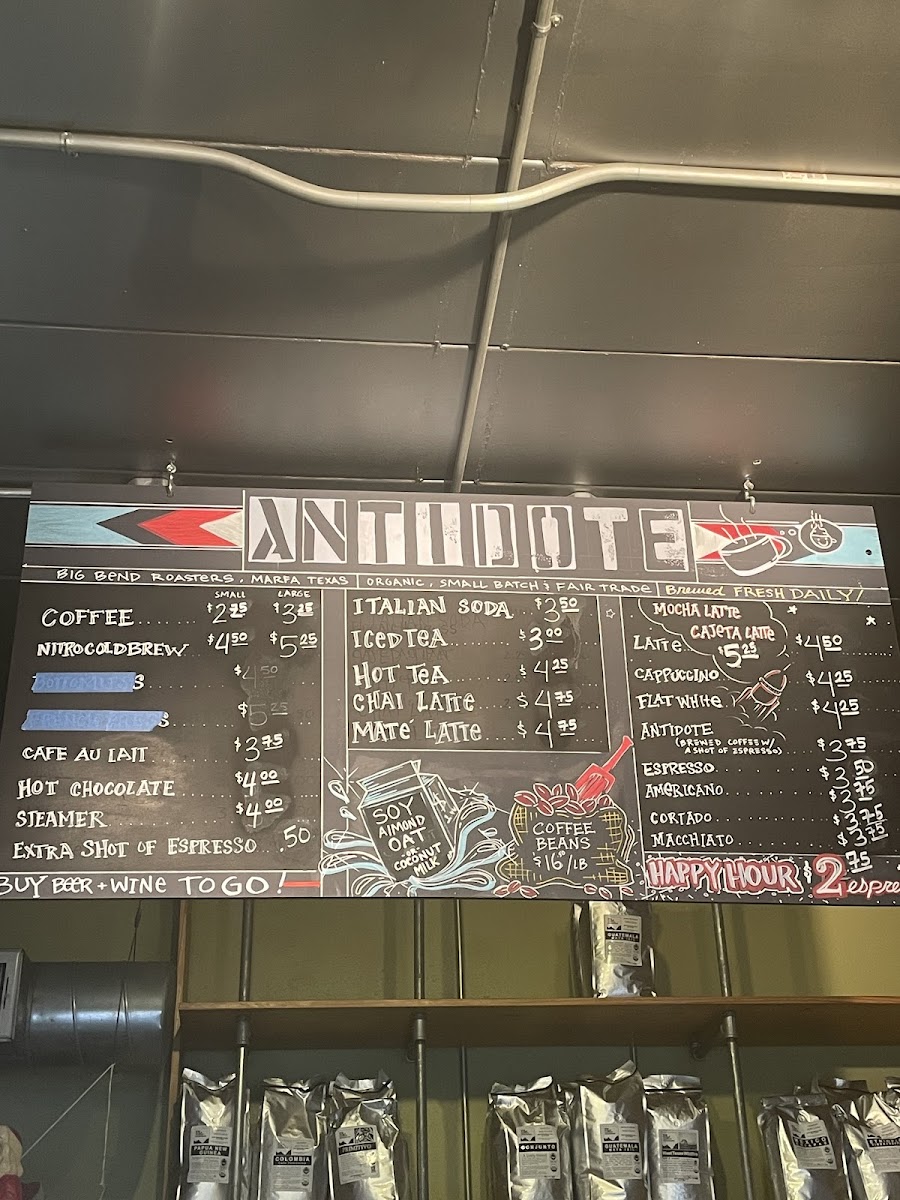 ANTIDOTE
BIG BEND ROASTERS, MARFA TEXAS
ORGANIC, SMALL BATCH & FAIR TRADE
Brewed FRESH DAILY!
SMALL LARGE
COFFEE $2.75 $3.25
NITRO COLD BREW $4.50 $5.25
$4.50
$5.25
CAFE AU LAIT $3.75
HOT CHOCOLATE $4.00
STEAMER $4.00
EXTRA SHOT OF ESPRESSO .50
BUY BEER + WINE TO GO!
ITALIAN SODA $3.50
ICED TEA $3.00
HOT TEA $4.25
CHAI LATTE $4.75
MATÉ LATTE $4.75
SOY
ALMOND
OAT
& COCONUT
MILK
COFFEE
BEANS
$16/LB
MOCHA LATTE
CAJETA LATTE
$5.25
LATTE $4.50
CAPPUCCINO $4.25
FLAT WHITE $4.25
ANTIDOTE
(BREWED COFFEE W/
A SHOT OF ESPRESSO) $3.75
ESPRESSO $3.50
AMERICANO $3.75
CORTADO $3.75
MACCHIATO $3.75
HAPPY HOUR $2.75 espre
GUATEMALA
PAPUA NEW
GUINEA
COLOMBIA
PRIMITIVO
CONJUNTO
GUATEMALA